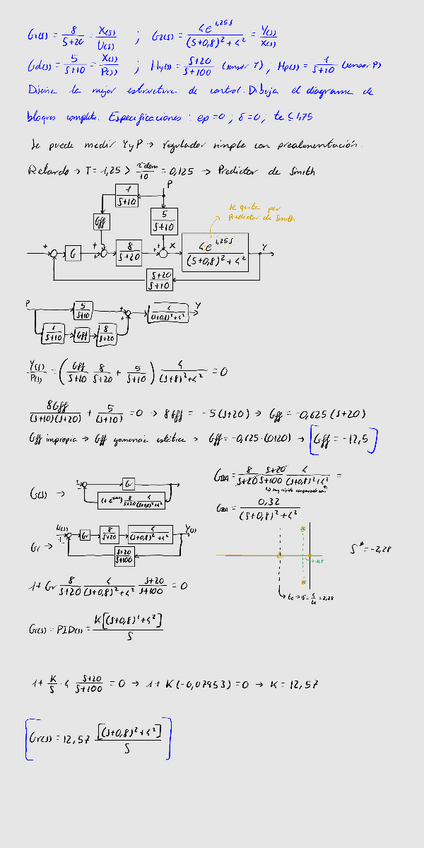 G₁(s) = 8/(s+20) = X(s)/U(s) ; G₂(s) = 4e^(1,25s)/((s+0,8)²+4²) = Y(s)/X(s)
Gd(s) = 5/(s+10) = X(s)/P(s) ; Hy(s) = (s+20)/(s+100) (sensor Y), Hp(s) = 1/(s+10) (sensor P)
Diseña la mejor estructura de control. Dibuja el diagrama de
bloques completo. Especificaciones: ep=0; δ=0; te≤1,75
Se puede medir Y y P → regulador simple con prealimentación.
Retardo → T=1,25 > /10 = 0,125 → Predictor de Smith
P
1/(s+10)
Gff
5/(s+10)
Se quita por
Predictor de Smith
G
8/(s+20)
X
4e^(1,25s)/((s+0,8)²+4²)
Y
(s+20)/(s+10)
P
5/(s+10)
4/((s+0,8)²+4²)
Y
1/(s+10)
Gff
8/(s+20)
Y(s)/P(s) = (Gff/(s+10) 8/(s+20) + 5/(s+10)) 4/((s+8)²+4²) = 0
8Gff/((s+10)(s+20)) + 5/(s+10) = 0 → 8Gff = -5(s+20) → Gff = -0,625(s+20)
Gff impropia → Gff ganancia estática → Gff = -0,625·(0+20) → [Gff = -12,5]
G(s) →
Gr
8/(s+20) 4/((s+0,8)²+4²)
= 8/(s+20) (s+20)/(s+100) 4/((s+0,8)²+4²) =
= 0,32/((s+0,8)²+4²)
Gr →
U(s)
Gr
8/(s+20)
4/((s+0,8)²+4²)
Y(s)
(s+20)/(s+100)
s* = -2,28
1+Gr 8/(s+20) 4/((s+0,8)²+4²) (s+20)/(s+100) = 0
Gr(s) = PID(s) = K[(s+0,8)²+4²]/s
1+ K/s · 4 (s+20)/(s+100) = 0 → 1+K(-0,07953) = 0 → K = 12,57
[Gr(s) = 12,57 [(s+0,8)²+4²]/s]